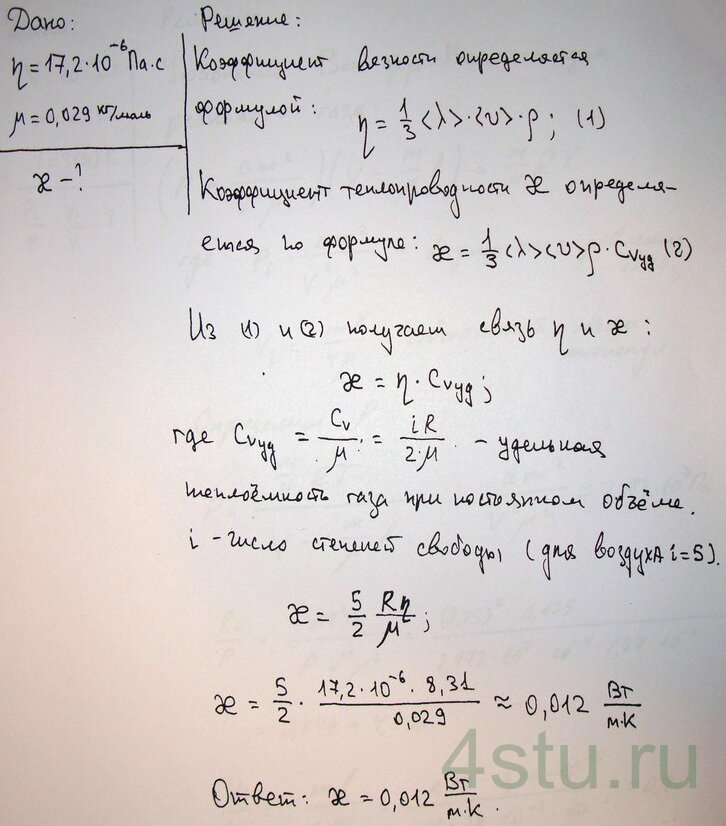 Дано:
η = 17,2·10⁻⁶ Па·с
μ = 0,029 кг/моль
æ - ?
Решение:
Коэффициент вязкости определяется
формулой: η = 1/3 <λ>·<υ>·ρ; (1)
Коэффициент теплопроводности æ определя-
ется по формуле: æ = 1/3 <λ><υ>ρ·Cvуд (2)
Из (1) и (2) получаем связь η и æ:
æ = η·Cvуд;
где Cvуд = Cv/μ = iR/2·μ - удельная
теплоёмкость газа при постоянном объёме.
i - число степеней свободы (для воздуха i=5).
æ = 5/2 Rη/μ;
æ = 5/2 · 17,2·10⁻⁶·8,31/0,029 ≈ 0,012 Вт/м·К
Ответ: æ = 0,012 Вт/м·К.
4stu.ru